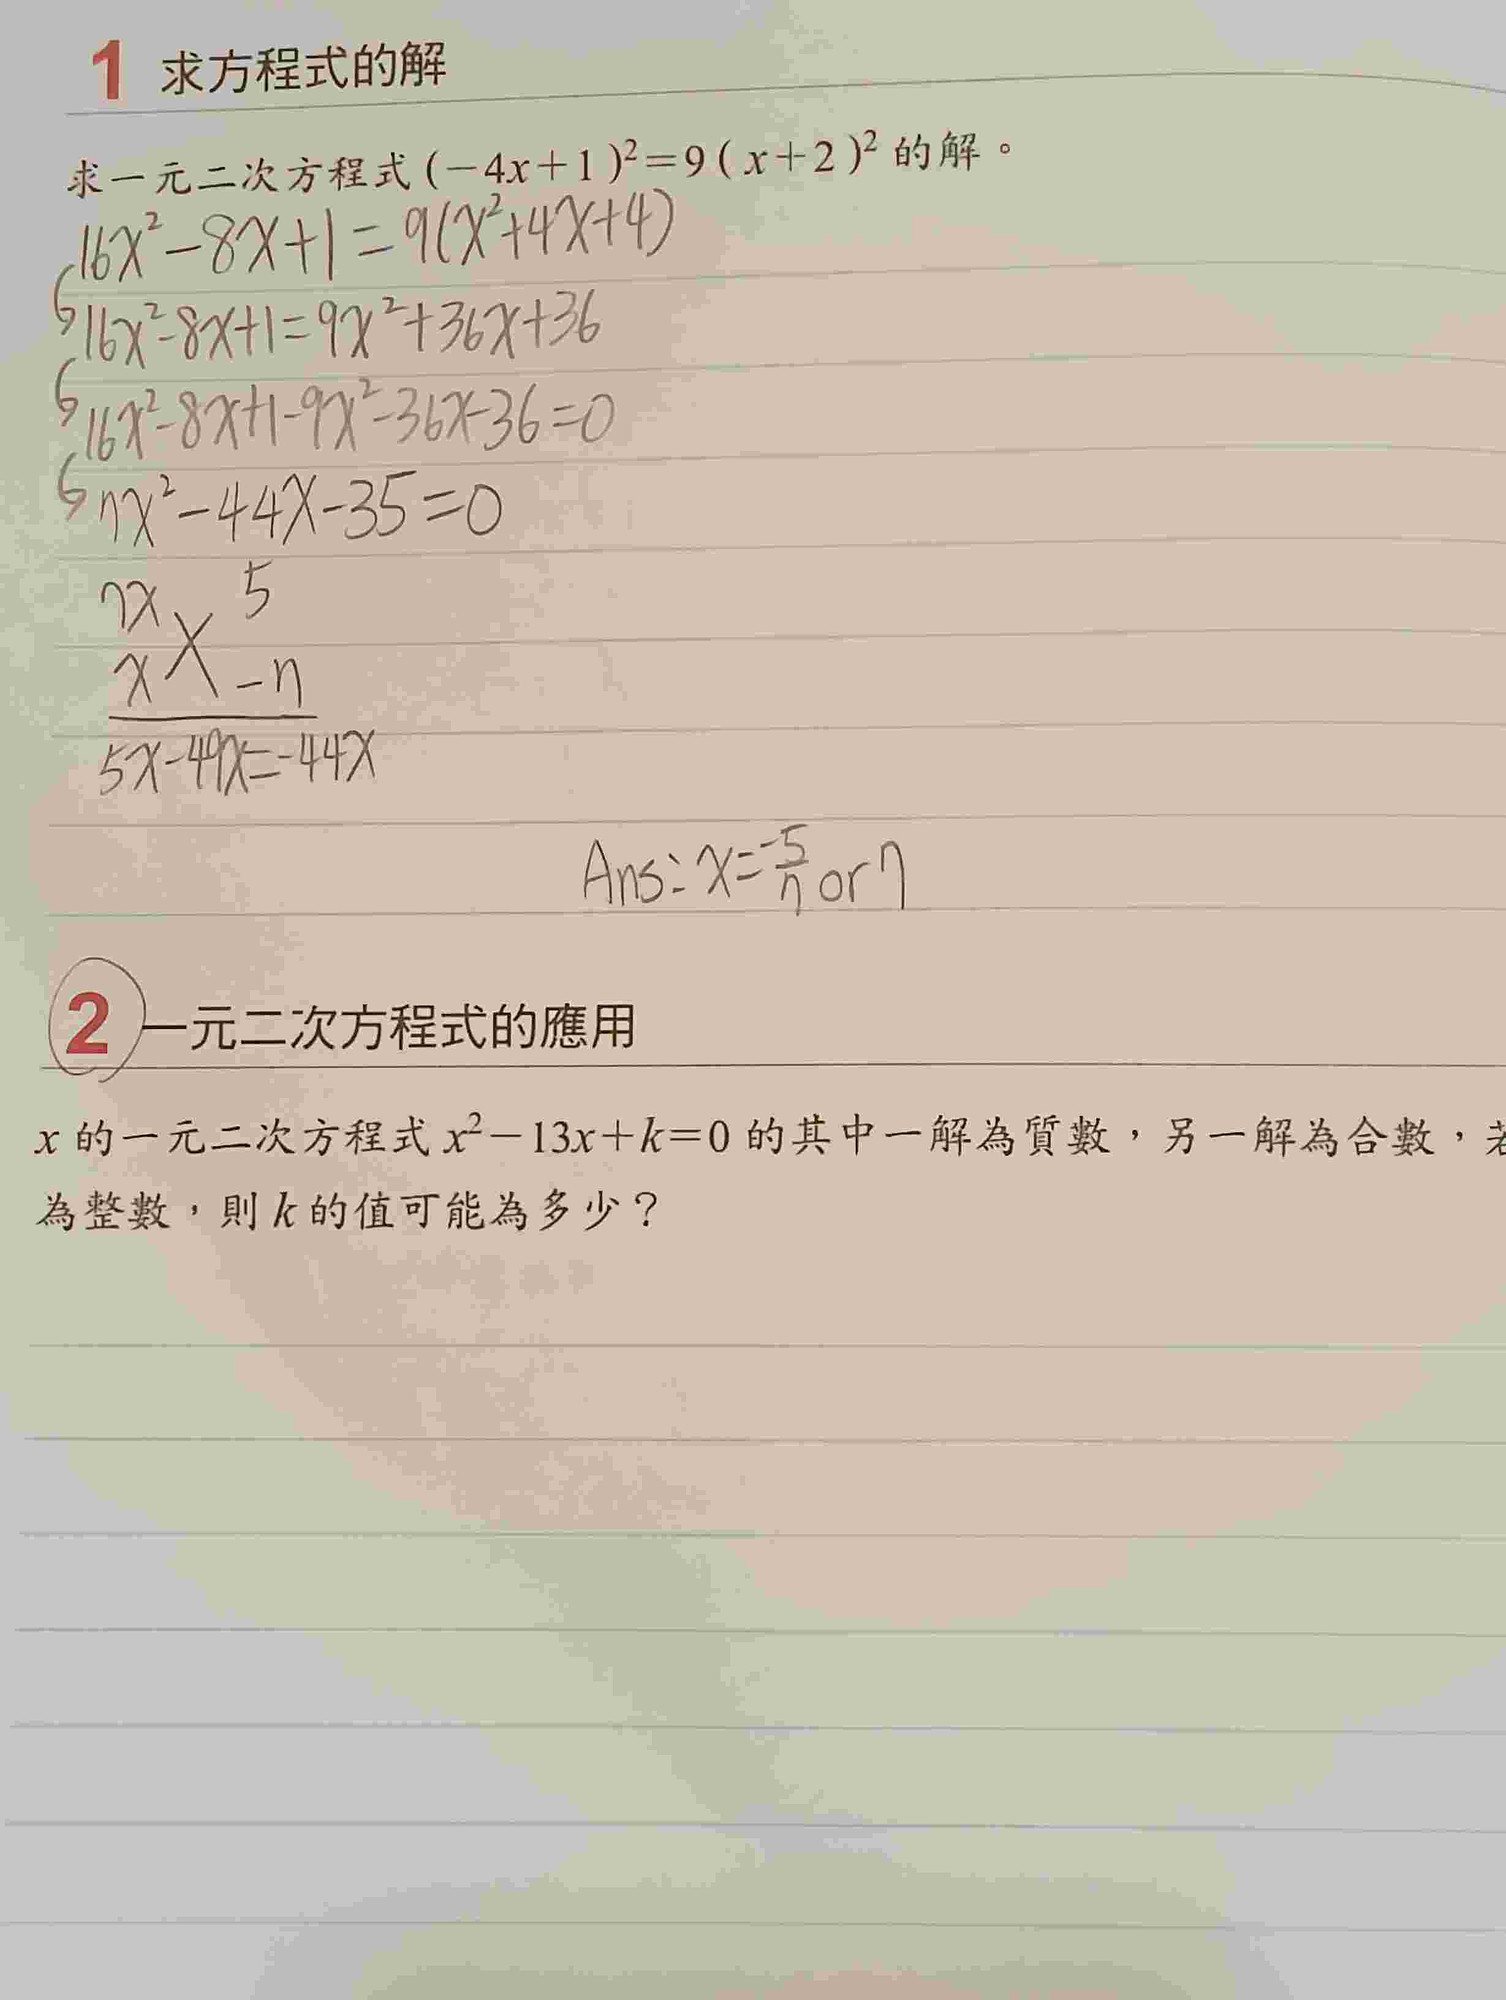 1 求方程式的解
求一元二次方程式(-4x+1)²=9(x+2)²的解。
16x²-8x+1=9(x²+4x+4)
16x²-8x+1=9x²+36x+36
16x²-8x+1-9x²-36x-36=0
7x²-44x-35=0
7x 5
x -7
5x-49x=-44x
Ans:x=-5/7 or 7
2 一元二次方程式的應用
x的一元二次方程式x²-13x+k=0的其中一解為質數,另一解為合數,
為整數,則k的值可能為多少?